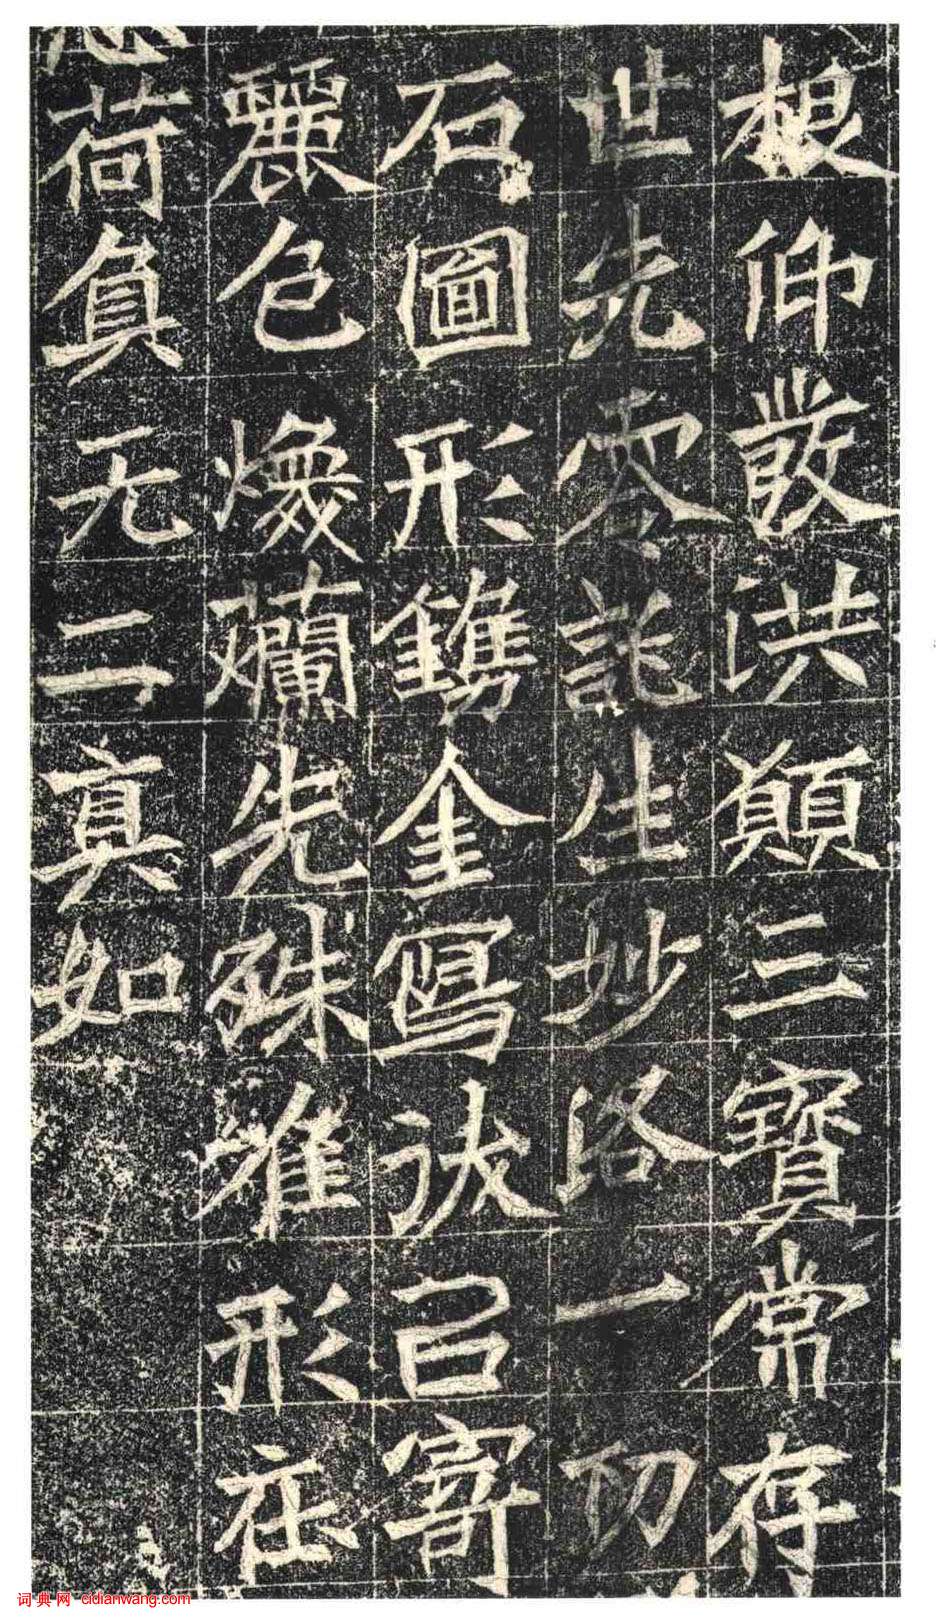 根仰發洪願三寶常存
世先零託生妙路一切
石圖形鐫金寫狀召寄
麗色煥爛先殊雅形在
荷負无二真如
词典网 cidianwang.com